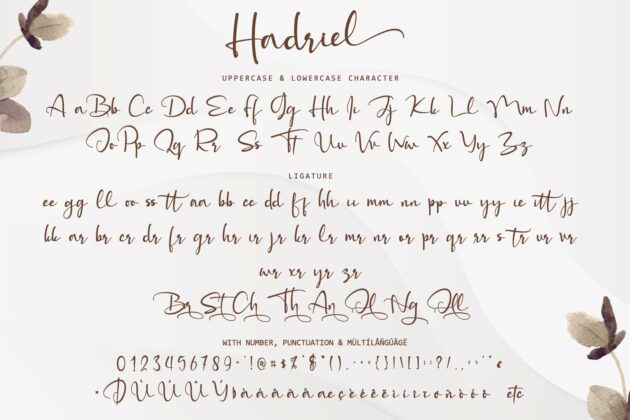 Hadriel
UPPERCASE & LOWERCASE CHARACTER
A a Bb Cc Dd Ee Ff Gg Hh Ii Jj Kk Ll Mm Nn
Oo Pp Qq Rr Ss Tt Uu Vv Ww Xx Yy Zz
LIGATURE
ee gg ll oo ss tt aa bb cc dd ff hh ii mm nn pp uu yy ie itt jj
kk ar br cr dr fr gr hr ir jr kr lr mr nr or pr qr rr str ur vr
wr xr yr zr
Br St Ch Th An Ng
WITH NUMBER, PUNCTUATION & MÜLTÍLÂÑGÜÃGË
0123456789
etc